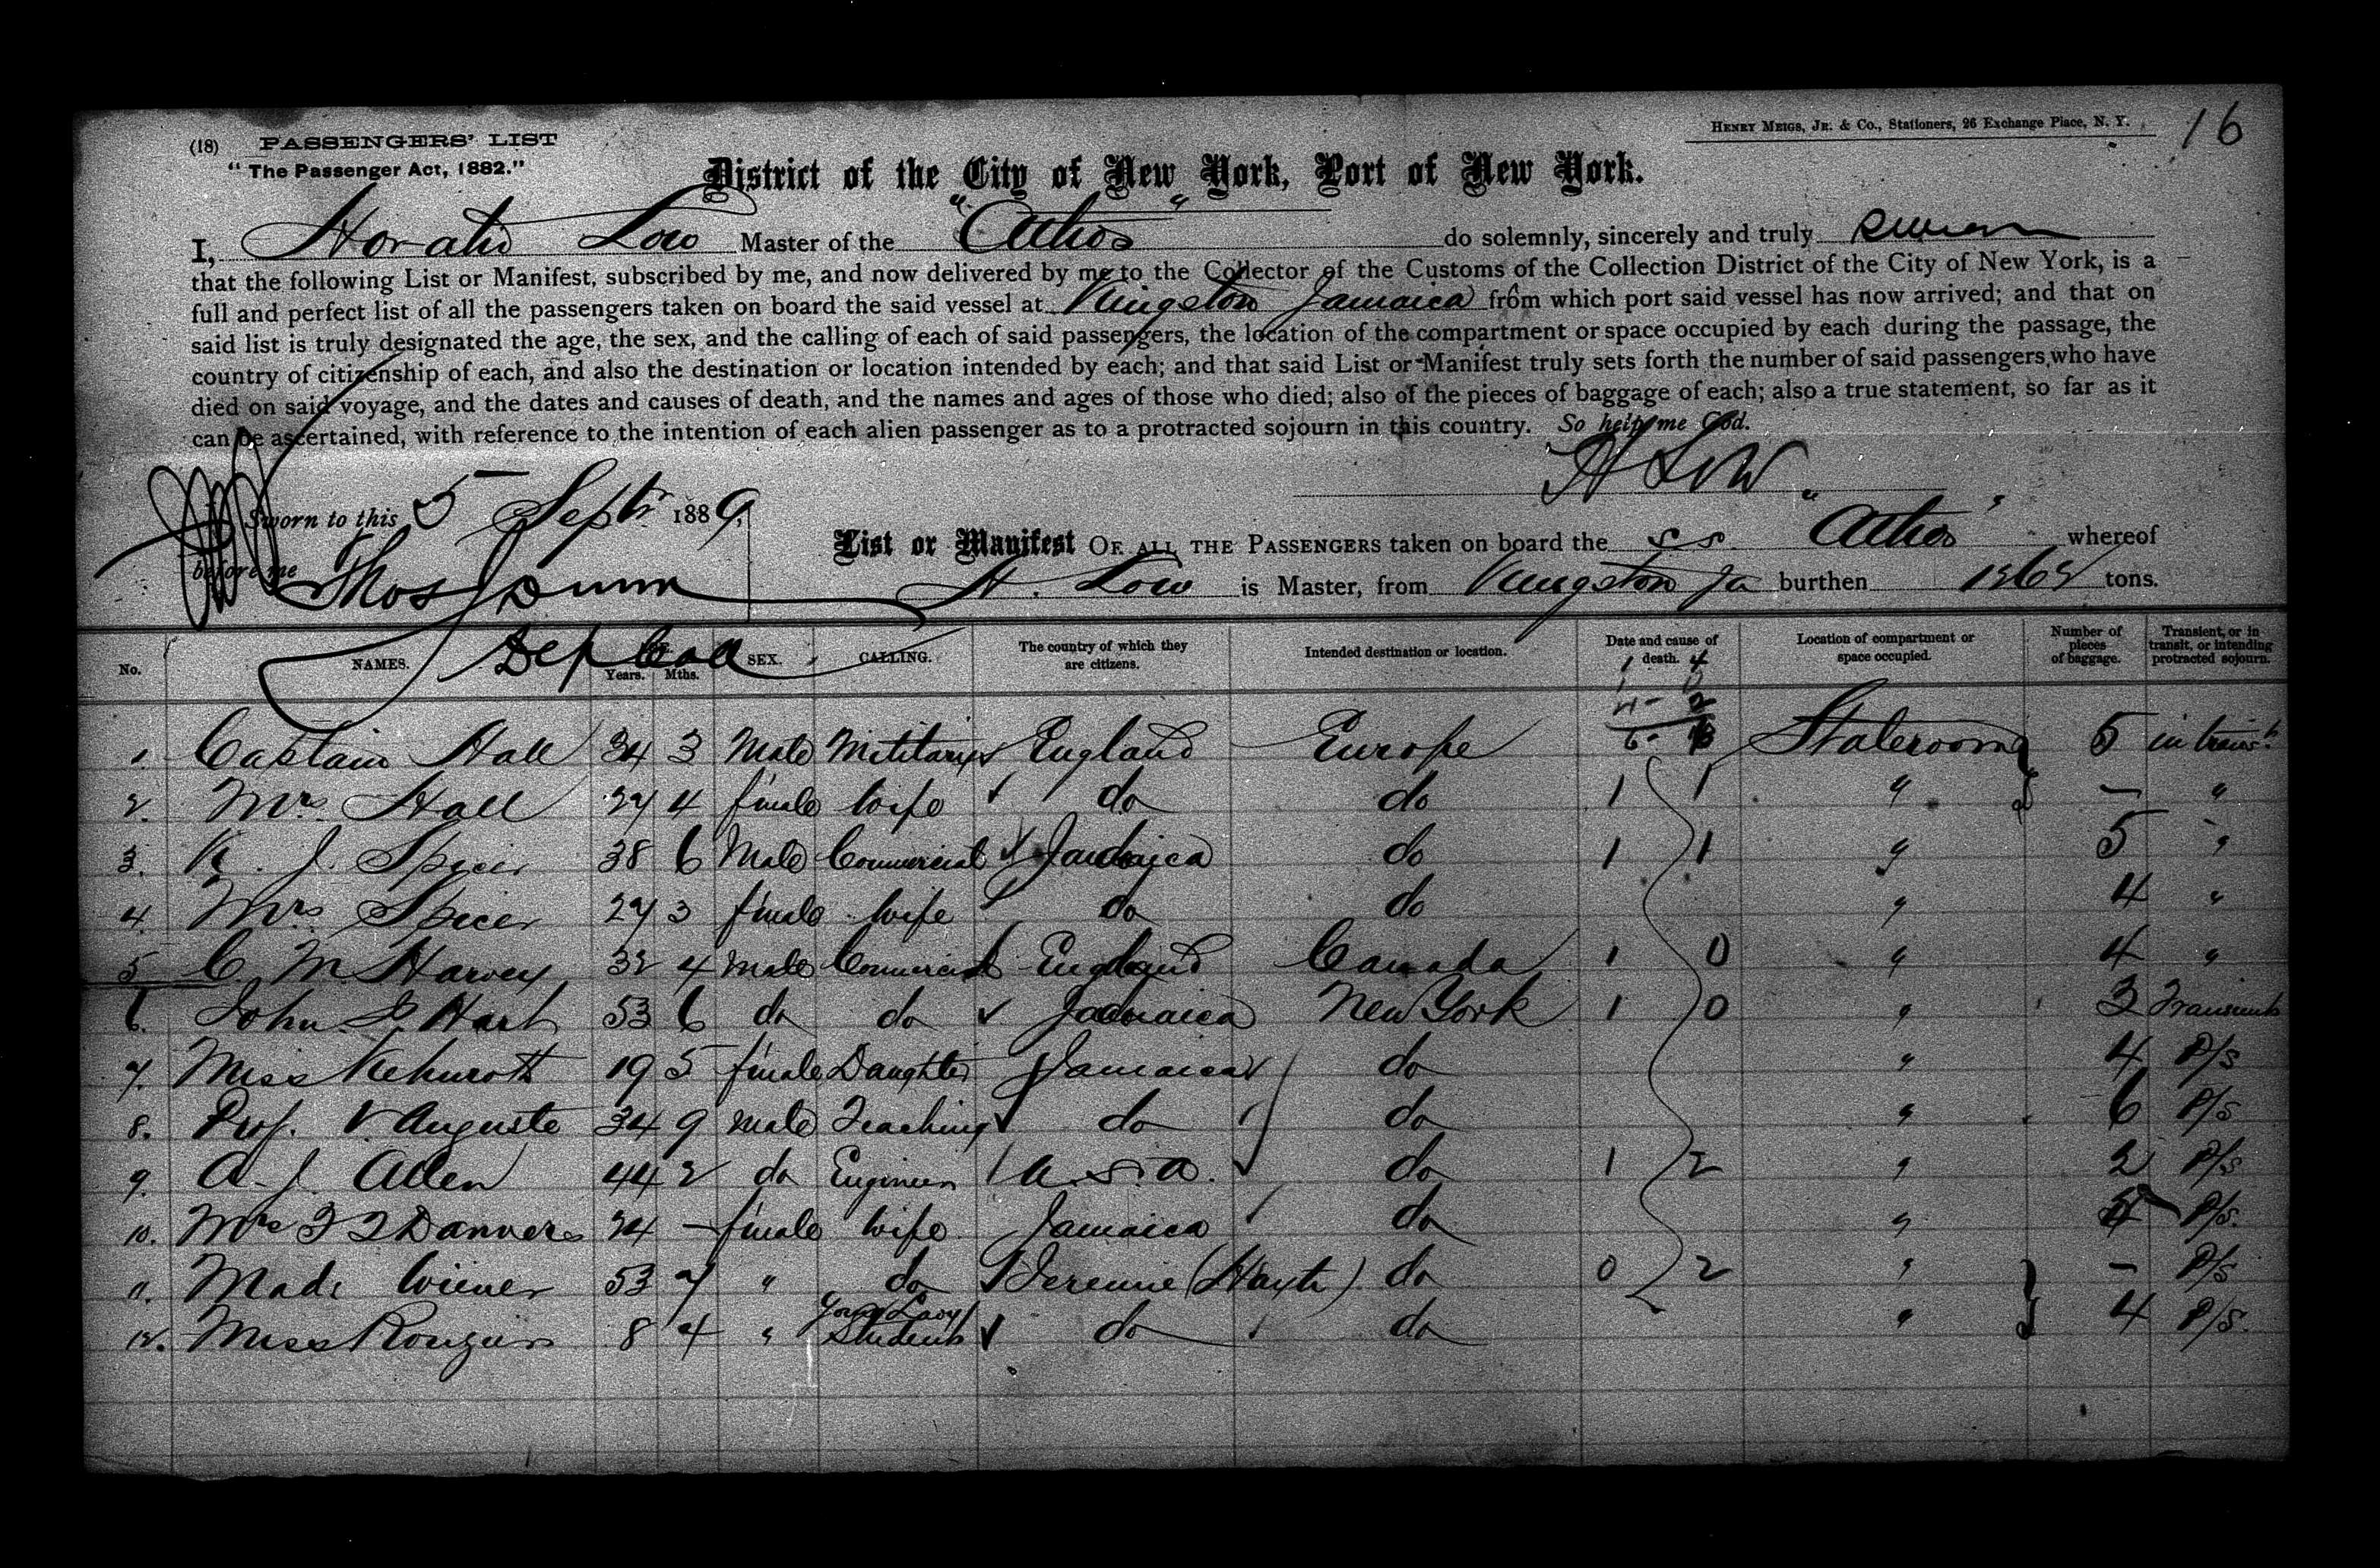 16
HENRY MEIGS, JR. & CO., Stationers, 26 Exchange Place, N. Y.
(18) PASSENGERS' LIST
"The Passenger Act, 1882."
District of the City of New York, Port of New York.
I, Horatio Low Master of the "Athos" do solemnly, sincerely and truly swear
that the following List or Manifest, subscribed by me, and now delivered by me to the Collector of the Customs of the Collection District of the City of New York, is a
full and perfect list of all the passengers taken on board the said vessel at Kingston Jamaica from which port said vessel has now arrived; and that on
said list is truly designated the age, the sex, and the calling of each of said passengers, the location of the compartment or space occupied by each during the passage, the
country of citizenship of each, and also the destination or location intended by each; and that said List or Manifest truly sets forth the number of said passengers who have
died on said voyage, and the dates and causes of death, and the names and ages of those who died; also of the pieces of baggage of each; also a true statement, so far as it
can be ascertained, with reference to the intention of each alien passenger as to a protracted sojourn in this country. So help me God.
H Low
Sworn to this 5 Septr 1889,
before me Thos Dunn
Dep Coll
List or Manifest OF ALL THE PASSENGERS taken on board the ss "Athos" whereof
H. Low is Master, from Kingston Ja burthen tons.
No. NAMES. Years. Mths. SEX. CALLING. The country of which they are citizens. Intended destination or location. Date and cause of death. Location of compartment or space occupied. Number of pieces of baggage. Transient, or in transit, or intending protracted sojourn.
1. Captain Hall 34 3 Male Military England Europe Staterooms 5 in transt
2. Mrs. Hall 27 4 female wife do do 1 1 " — "
3. K. J. Spicer 38 6 Male Commercial Jamaica do 1 1 " 5 "
4. Mrs Spicer 27 3 female wife do do " 4 "
5 C. M. Harvey 32 4 Male Commercial England Canada 1 0 " 4 "
6. John Hart 53 6 do do Jamaica New York 1 0 " 3 Transient
7. Miss 19 5 female Daughter Jamaica do " 4 P/S
8. Prof. V. Auguste 34 9 Male Teaching do do " 6 P/S
9. A. J. Allen 44 2 do Engineer U.S.A. do 1 2 " 2 P/S
10. Mrs Danvers 24 — female wife Jamaica do " 4 P/S.
11. Made Wiener 53 7 " do Jeremie (Hayti) do 0 2 " — P/S
12. Miss 8 4 " Young Lady Student do do " 4 P/S.